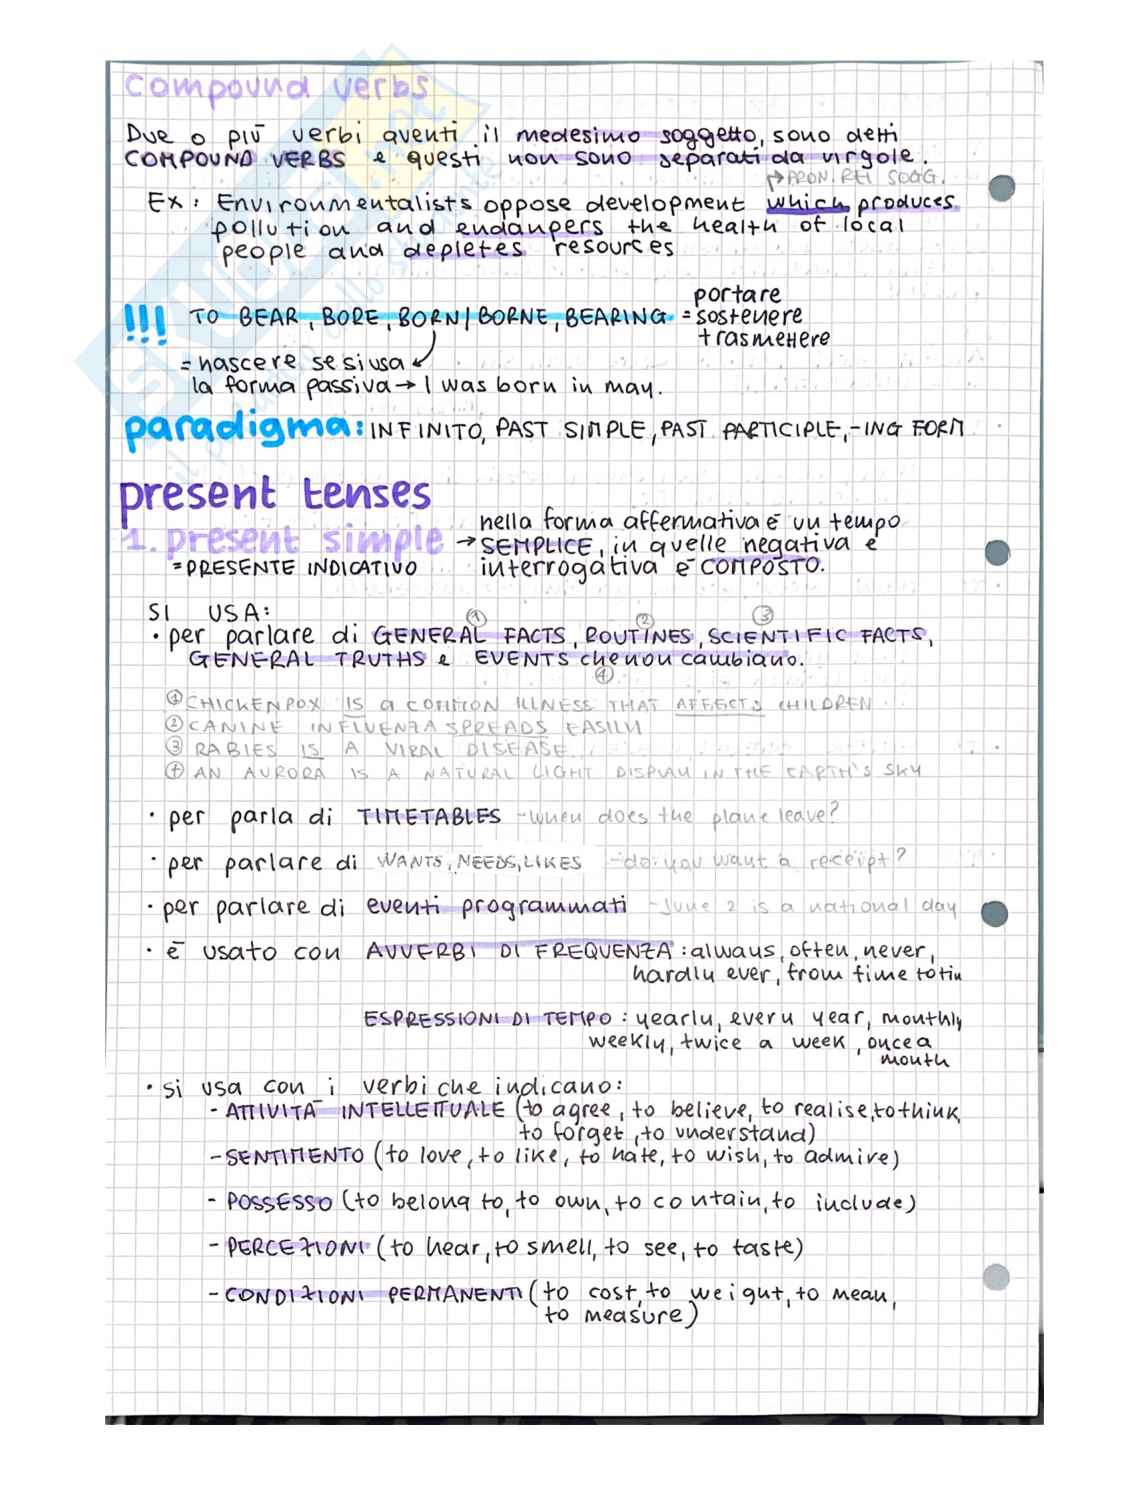 compound verbs
Due o più verbi aventi il medesimo soggetto, sono detti
COMPOUND VERBS e questi non sono separati da virgole.
→PRON. REL SOGG.
Ex: Environmentalists oppose development which produces
pollution and endangers the health of local
people and depletes resources
!!! TO BEAR, BORE, BORN/BORNE, BEARING = portare
sostenere
trasmettere
= nascere se si usa
la forma passiva → I was born in may.
paradigma: INFINITO, PAST SIMPLE, PAST PARTICIPLE, -ING FORM
present tenses
1. present simple
= PRESENTE INDICATIVO
→ nella forma affermativa è un tempo
SEMPLICE, in quelle negativa e
interrogativa è COMPOSTO.
SI USA:
① ② ③
• per parlare di GENERAL FACTS, ROUTINES, SCIENTIFIC FACTS,
GENERAL TRUTHS e EVENTS che non cambiano.
④
① CHICKENPOX IS a COMMON ILLNESS THAT AFFECTS CHILDREN
② CANINE INFLUENZA SPREADS EASILY
③ RABIES IS A VIRAL DISEASE
④ AN AURORA IS A NATURAL LIGHT DISPLAY IN THE EARTH'S SKY
• per parla di TIMETABLES - when does the plane leave?
• per parlare di WANTS, NEEDS, LIKES - do you want a receipt?
• per parlare di eventi programmati - June 2 is a national day
• è usato con AVVERBI DI FREQUENZA: always, often, never,
hardly ever, from time to tim
ESPRESSIONI DI TEMPO: yearly, every year, monthly
weekly, twice a week, once a
month
• si usa con i verbi che indicano:
- ATTIVITÀ INTELLETTUALE (to agree, to believe, to realise, to think,
to forget, to understand)
- SENTIMENTO (to love, to like, to hate, to wish, to admire)
- POSSESSO (to belong to, to own, to contain, to include)
- PERCEZIONI (to hear, to smell, to see, to taste)
- CONDIZIONI PERMANENTI (to cost, to weight, to mean,
to measure)